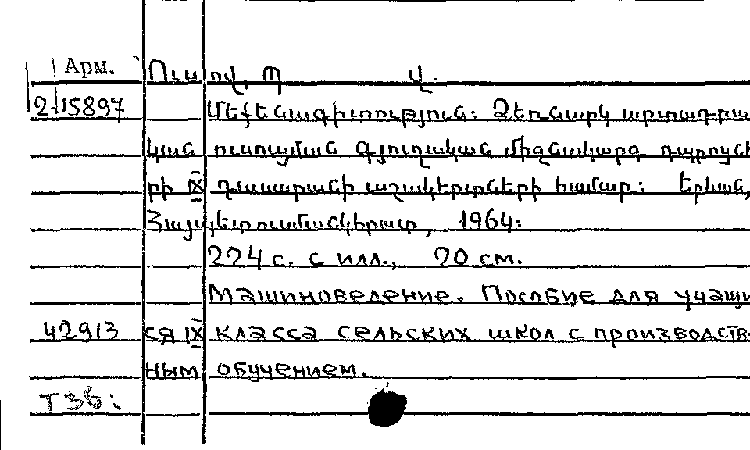 Арм. Ուսով, Պ վ.
2-15897 Մեքենագիտություն։ Ձեռնարկ արտադրա
կան ուսուցման գյուղական միջնակարգ դպրոցնե
րի IX դասարանի աշակերտների համար։ Երևան,
Հայպետուսմանկհրատ, 1964։
224 с. с илл., 20 см.
Машиноведение. Пособие для учащи
42913 ся IX класса сельских школ с производств-
ным обучением.